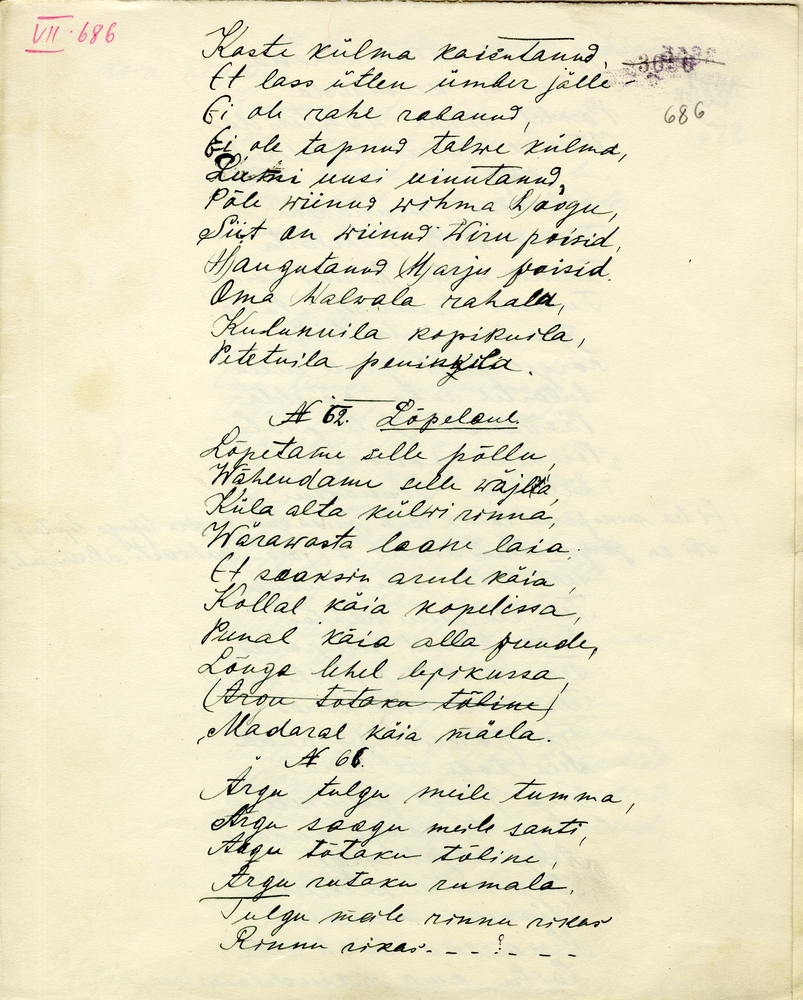 VII · 686
Kaste külma kaisutanud,
Et lass ütlen ümber jälle -
686
Ei ole rahe rabanud,
Ei ole tapnud talwe külma,
uusi uinutanud,
Põle wiinud wihma hoogu,
Siit on wiinud Wiru poisid,
Mangutanud Harju poisid.
Oma kalwala rahala,
kopikuila,
Petetuila
N 62. Lõpelaul.
Lõpetame selle põllu,
Wähendame selle wäjla,
Küla alta külwi rinna,
Wärawasta laane laia.
Et saaksin arule käia,
Kollal käia kopelissa,
Punal käia alla puude,
Lõnga lehel lepikussa,
(Argu tõtaku tõbine)
Madaral käia mäela.
N 6
Ärgu tulgu meile tumma,
Ärgu saagu meile santi,
Ärgu tõtaku tõbine,
Ärgu rutaku rumala,
Tulgu meile rinnu rikas
Rinnu rikas. - - ? - - -